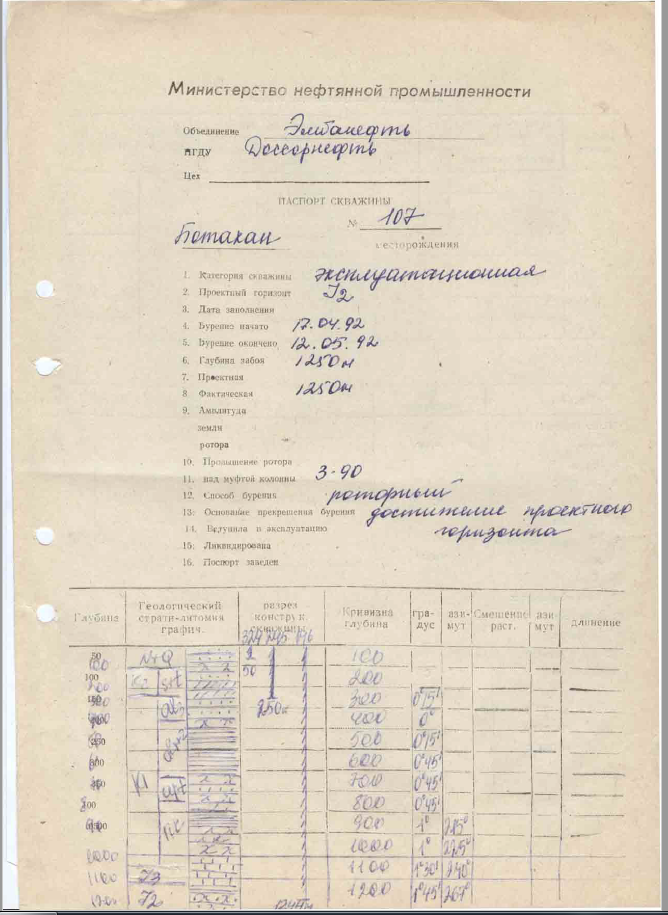 Министерство нефтянной промышленности
Объединение Эмбанефть
НГДУ Доссорнефть
Цех
ПАСПОРТ СКВАЖИНЫ
№ 107
Ботахан месторождения
1. Категория скважины эксплуатационная
2. Проектный горизонт J2
3. Дата заполнения
4. Бурение начато 17.04.92
5. Бурение окончено 12.05.92
6. Глубина забоя 1250м
7. Проектная
8. Фактическая 1250м
9. Амплитуда
земли
ротора
10. Превышение ротора
11. над муфтой колонны 3-90
12. Способ бурения роторный
13. Основание прекрешения бурения достижение проектного
14. Вступила в эксплуатацию горизонта
15. Ликвидирована
16. Поспорт заведен
Глубина Геологический страти-литомия график. разрез конструк. скважины Кривизна глубина гра-дус ази-мут Смешение раст. ази-мут длинение
324 245 146
50 N+Q 2 100
100 K2 srt 50 200
300 0°15'
al3 250м 400 0°
500 0°15'
600 0°45'
K1 apt 700 0°45'
800 0°45'
nc 900 1° 215°
1000 1° 225°
1000 1100 1°30' 240°
1100 J3 1200 1°45' 267°
1200 J2